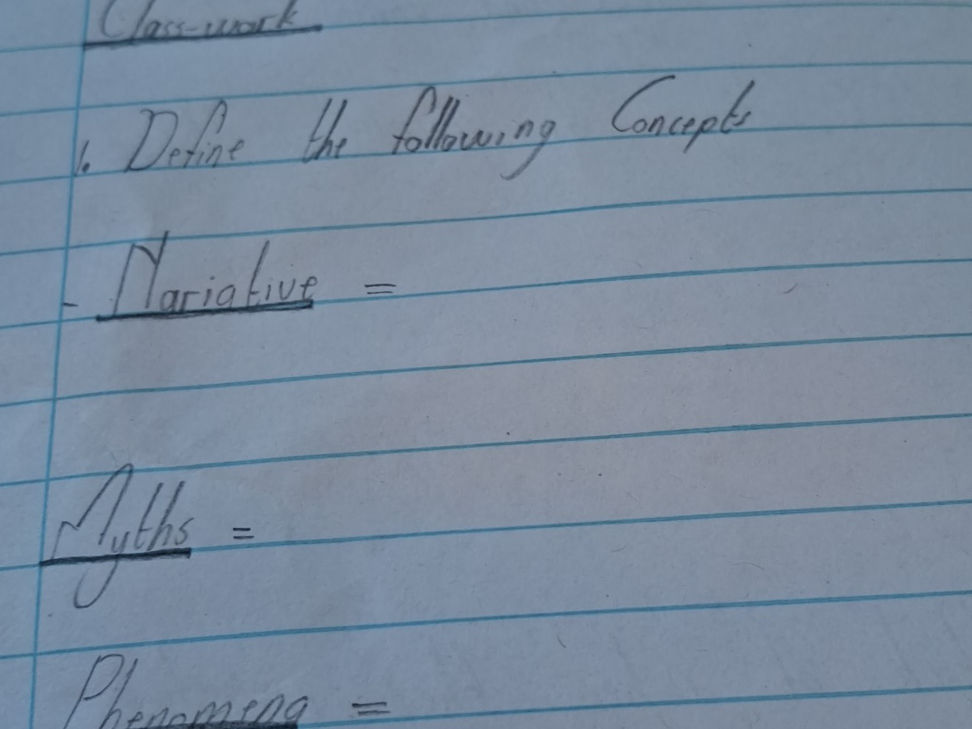 Class-work
1. Define the following Concepts
- Nariative =
Myths =
Phenomena =